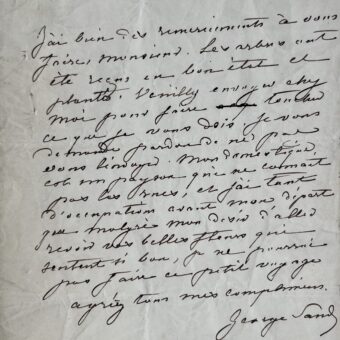 J'ai bien des remerciements à vous
faire, monsieur. Les arbres ont
été reçus en bon état et
plantés. Veuillez envoyer chez
moi pour faire toucher
ce que je vous dois. Je vous
demande pardon de ne pas
vous l'envoyer. Mon domestique
est un paysan qui ne connait
pas les rues, et j'ai tant
d'occupation avant mon départ
que malgré mon désir d'aller
revoir vos belles fleurs qui
sentent si bon, je ne pourrai
pas faire ce petit voyage
agréez tous mes complimens.
George Sand